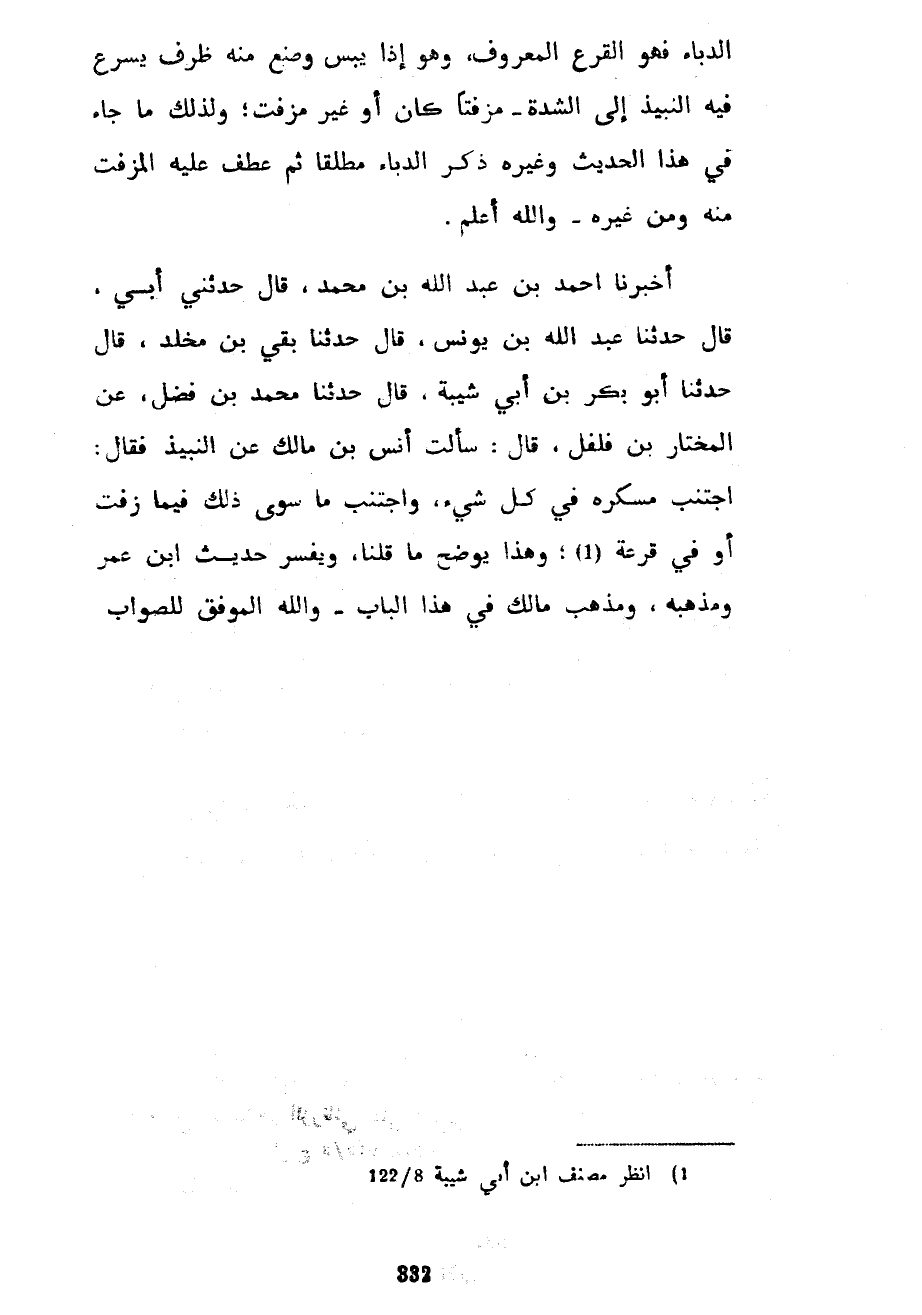 الدباء فهو القرع المعروف، وهو إذا يبس وصنع منه ظرف يسرع
فيه النبيذ إلى الشدة ـ مزفتاً كان أو غير مزفت؛ ولذلك ما جاء
في هذا الحديث وغيره ذكر الدباء مطلقا ثم عطف عليه المزفت
منه ومن غيره ـ والله أعلم .
أخبرنا احمد بن عبد الله بن محمد ، قال حدثني أبي ،
قال حدثنا عبد الله بن يونس ، قال حدثنا بقي بن مخلد ، قال
حدثنا أبو بكر بن أبي شيبة ، قال حدثنا محمد بن فضل، عن
المختار بن فلفل ، قال : سألت أنس بن مالك عن النبيذ فقال :
اجتنب مسكره في كل شيء، واجتنب ما سوى ذلك فيما زفت
أو في قرعة (1) ؛ وهذا يوضح ما قلنا، ويفسر حديث ابن عمر
ومذهبه ، ومذهب مالك في هذا الباب ـ والله الموفق للصواب
1) انظر مصنف ابن أبي شيبة 122/8
332